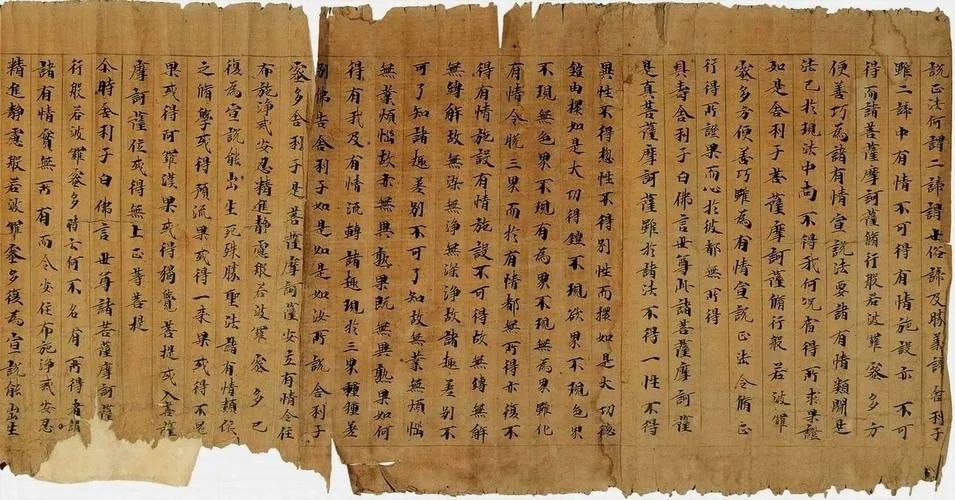 說正法何謂二諦謂世俗諦及勝義諦舍利子
雖二諦中有情不可得有情施設亦不可
得而諸菩薩摩訶薩脩行般若波羅蜜多方
便善巧為諸有情宣說法要諸有情類聞是
法已於現法中尚不得我何況當得所求果證
如是舍利子菩薩摩訶薩脩行般若波羅
蜜多方便善巧雖為有情宣說正法令脩正
行得所證果而心於彼都無所得
具壽舍利子白佛言世尊此諸菩薩摩訶薩
是真菩薩摩訶薩雖於諸法不得一性不得
異性不得總性不得別性而擐如是大功德
鎧由擐如是大功得鎧不現欲界不現色界
不現無色界不現有為界不現無為界雖化
有情令脫三界而於有情都無所得亦復不
得有情施設有情施設不可得故無縛無解
無縛解故無染無淨無染淨故諸趣差別不
可了知諸趣差別不可了知故無業無煩惱
無業煩惱故亦無異熟果既無異熟果如何
得有我及有情流轉諸趣現於三界種種差
別佛告舍利子如是如是如汝所說舍利子
蜜多舍利子是菩薩摩訶薩安立有情令住
布施淨戒安忍精進靜慮般若波羅蜜多已
復為宣說能出生死殊勝聖法諸有情類依
之脩學或得預流果或得一來果或得不還
果或得阿羅漢果或得獨覺菩提或入菩薩
摩訶薩位或得無上正等菩提
尒時舍利子白佛言世尊諸菩薩摩訶薩
行般若波羅蜜多時云何不名有所得者雖
諸有情實無所有而令安住布施淨戒安忍
精進靜慮般若波羅蜜多復為宣說能出生